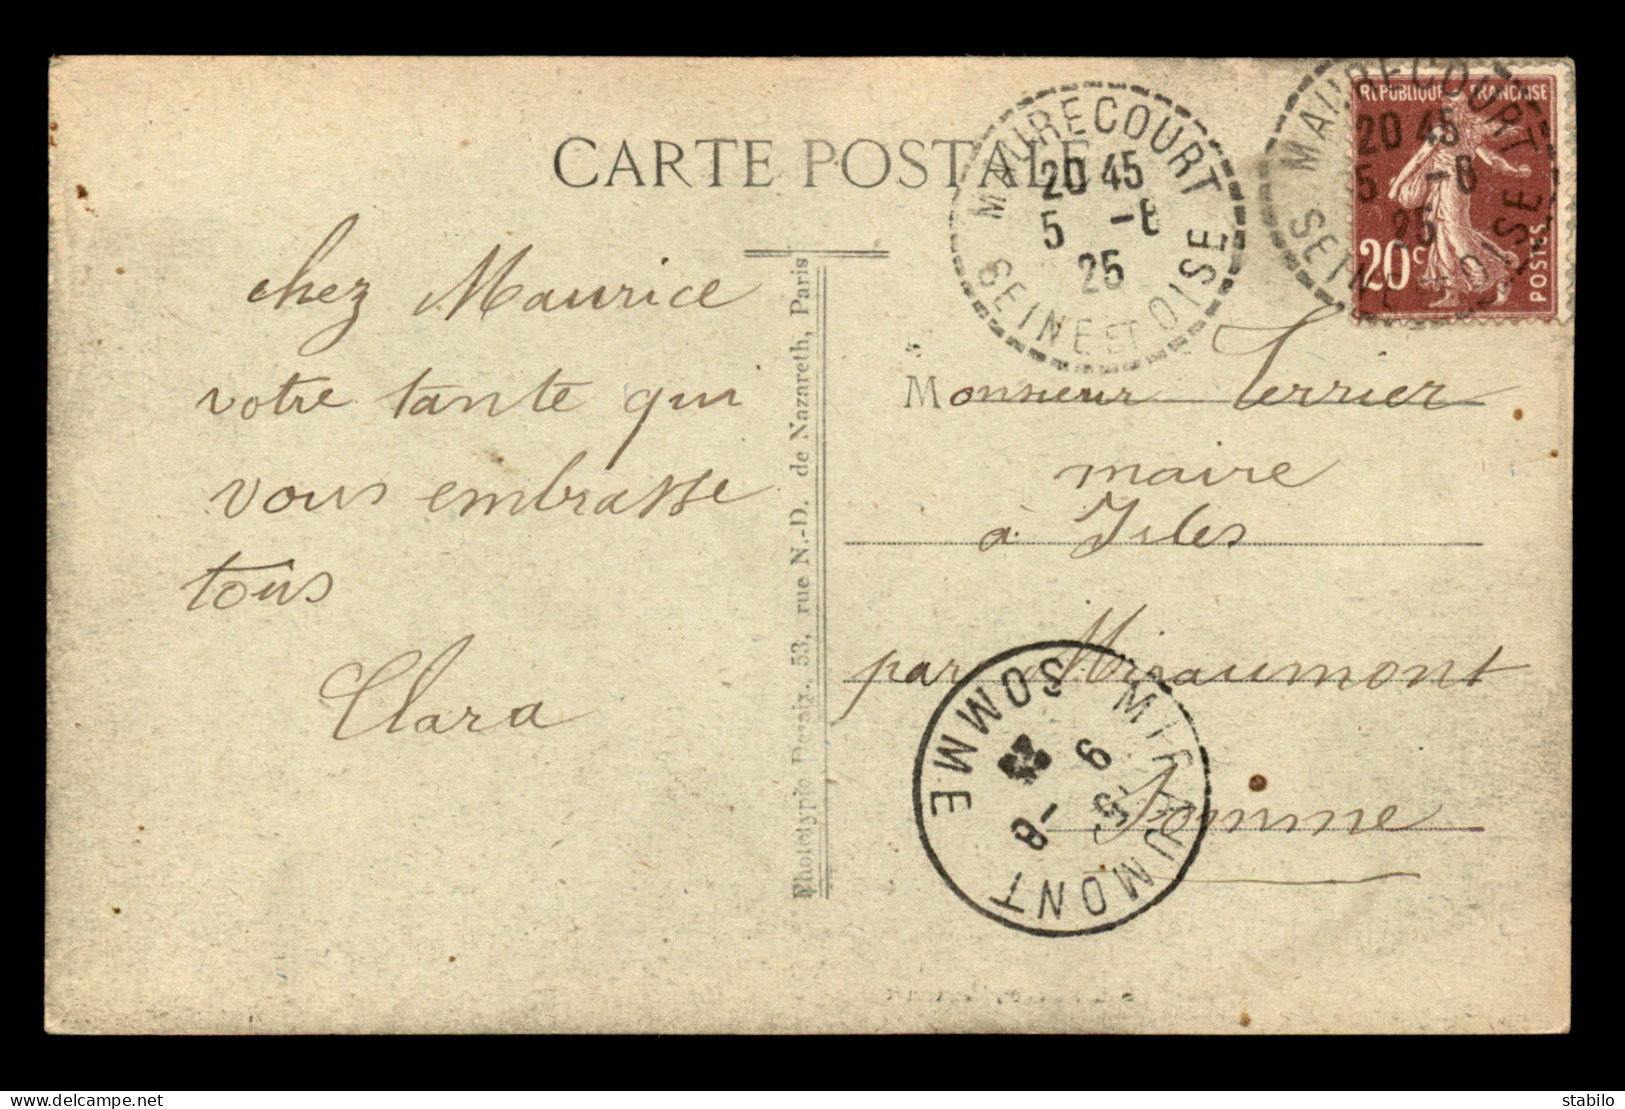 CARTE POSTALE
chez Maurice
votre tante qui
vous embrasse
tous
Clara
Phototypie Desaix, 53, rue N.-D. de Nazareth, Paris
MAURECOURT
20 45
5 -8
25
SEINE ET OISE
MAURECOURT
20 45
5 -8
25
SEINE ET OISE
REPUBLIQUE FRANÇAISE
20c
POSTES
Monsieur Terrier
maire
à Irles
par Miraumont
Somme
MIRAUMONT
9
6 -8
SOMME
delcampe.net
stabilo